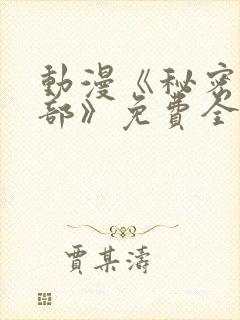 動漫《秘密
部》免費全
賈某濤